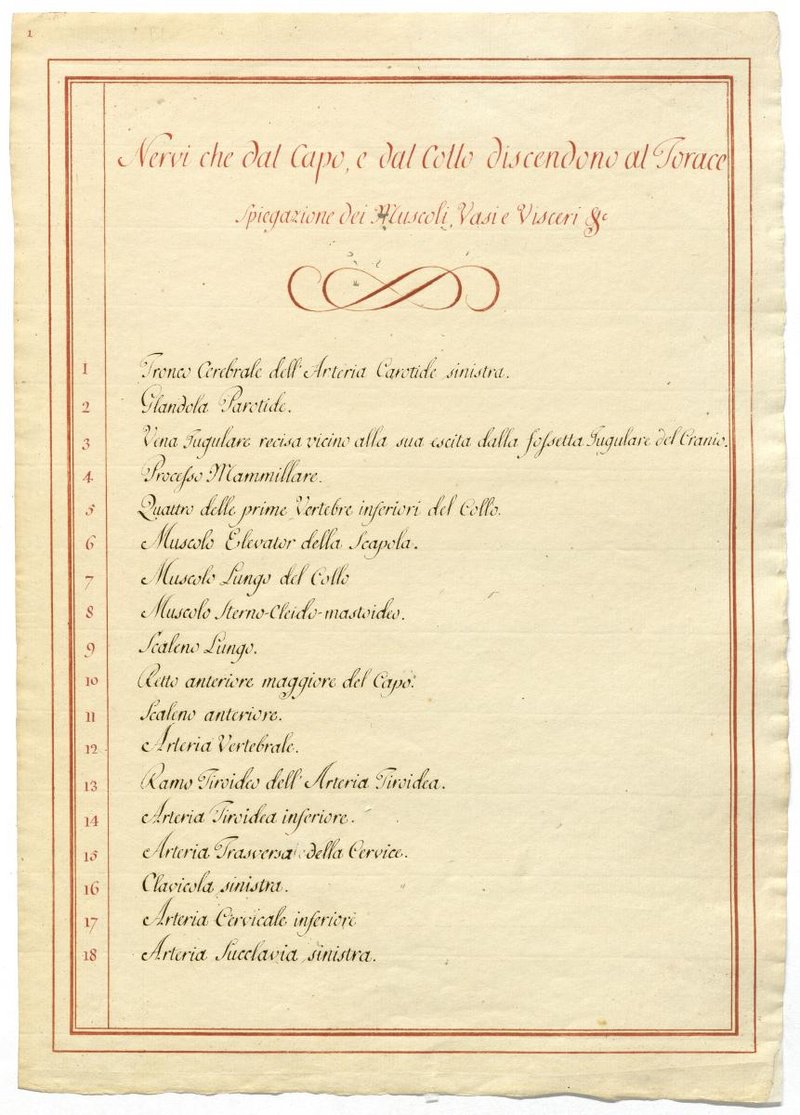 1
Nervi che dal Capo, e dal Collo discendono al Torace
Spiegazione dei Muscoli, Vasi e Visceri &c
1 Tronco Cerebrale dell'Arteria Carotide sinistra.
2 Glandola Parotide.
3 Vena Jugulare recisa vicino alla sua escita dalla foſsetta Jugulare del Cranio.
4. Proceſso Mammillare.
5 Quattro delle prime Vertebre inferiori del Collo.
6 Muscolo Elevator della Scapola.
7 Muscolo Lungo del Collo
8 Muscolo Sterno-Cleido-mastoideo.
9 Scaleno Lungo.
10 Retto anteriore maggiore del Capo.
11 Scaleno anteriore.
12 Arteria Vertebrale.
13 Ramo Tiroideo dell'Arteria Tiroidea.
14 Arteria Tiroidea inferiore.
15 Arteria Trasversa della Cervice.
16 Clavicola sinistra.
17 Arteria Cervicale inferiore
18 Arteria Succlavia sinistra.